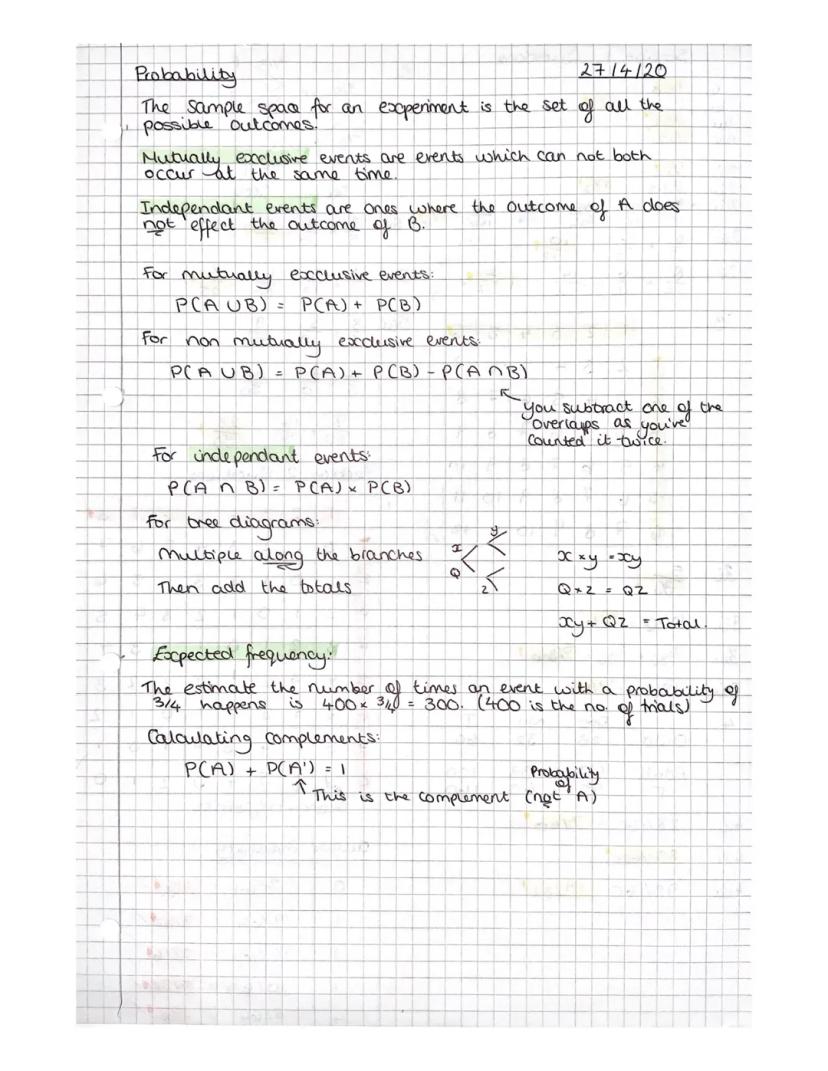 Probability 27/4/20
The sample space for an experiment is the set of all the
possible outcomes.
Mutually exclusive events are events which can not both
occur at the same time.
Independant events are ones where the outcome of A does
not effect the outcome of B.
For mutually exclusive events:
P(A ∪ B) = P(A) + P(B)
For non mutually exclusive events:
P(A ∪ B) = P(A) + P(B) - P(A ∩ B)
You subtract one of the
overlaps as you've
counted it twice.
For independant events:
P(A ∩ B) = P(A) × P(B)
For tree diagrams:
Multiple along the branches
Then add the totals
x
y
Q
z
x × y = xy
Q × z = Qz
xy + Qz = Total.
Expected frequency:
The estimate the number of times an event with a probability of
3/4 happens is 400 × 3/4 = 300. (400 is the no. of trials)
Calculating complements:
P(A) + P(A') = 1
↑ This is the complement (not A)
Probability
of